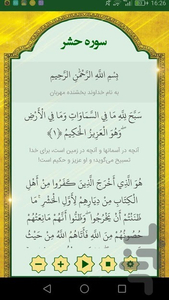 16:26
سوره حشر
بِسْمِ اللَّهِ الرَّحْمَٰنِ الرَّحِيمِ
به نام خداوند بخشنده مهربان
سَبَّحَ لِلَّهِ مَا فِي السَّمَاوَاتِ وَمَا فِي الْأَرْضِ
وَهُوَ الْعَزِيزُ الْحَكِيمُ ﴿١﴾
آنچه در آسمانها و آنچه در زمین است، برای خدا
تسبیح می‌گوید؛ و او عزیز و حکیم است!
هُوَ الَّذِي أَخْرَجَ الَّذِينَ كَفَرُوا مِنْ أَهْلِ
الْكِتَابِ مِنْ دِيَارِهِمْ لِأَوَّلِ الْحَشْرِ مَا
ظَنَنْتُمْ أَنْ يَخْرُجُوا وَظَنُّوا أَنَّهُمْ مَانِعَتُهُمْ
حُصُونُهُمْ مِنَ اللَّهِ فَأَتَاهُمُ اللَّهُ مِنْ حَيْثُ